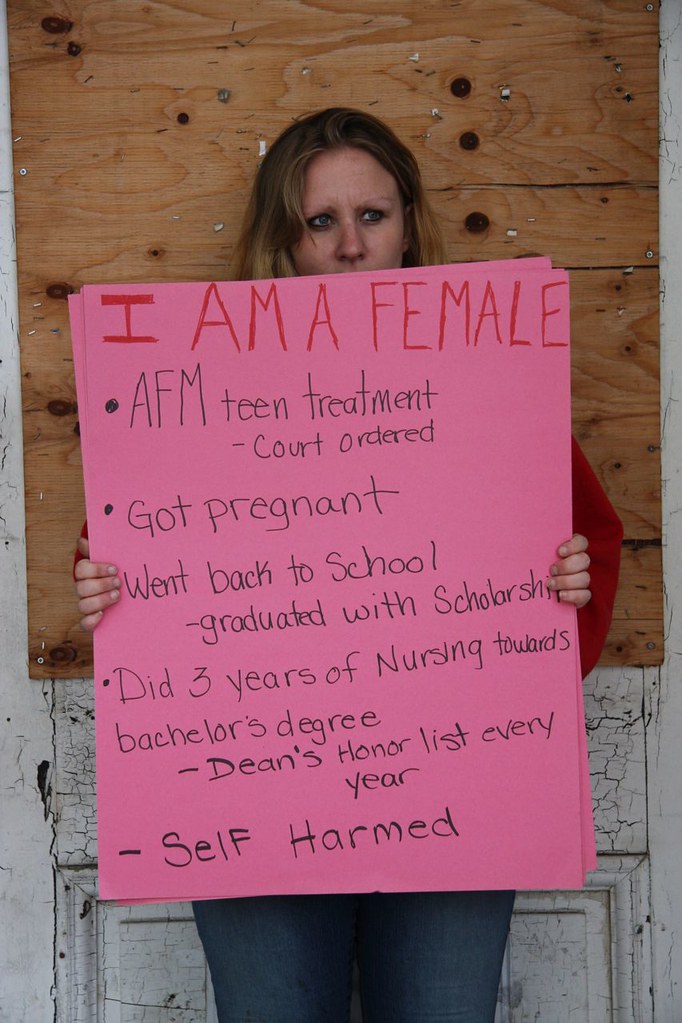 I AM A FEMALE
• AFM teen treatment
- Court ordered
• Got pregnant
• Went back to School
- graduated with Scholarship
• Did 3 years of Nursing towards
bachelor's degree
- Dean's Honor list every
year
- Self Harmed